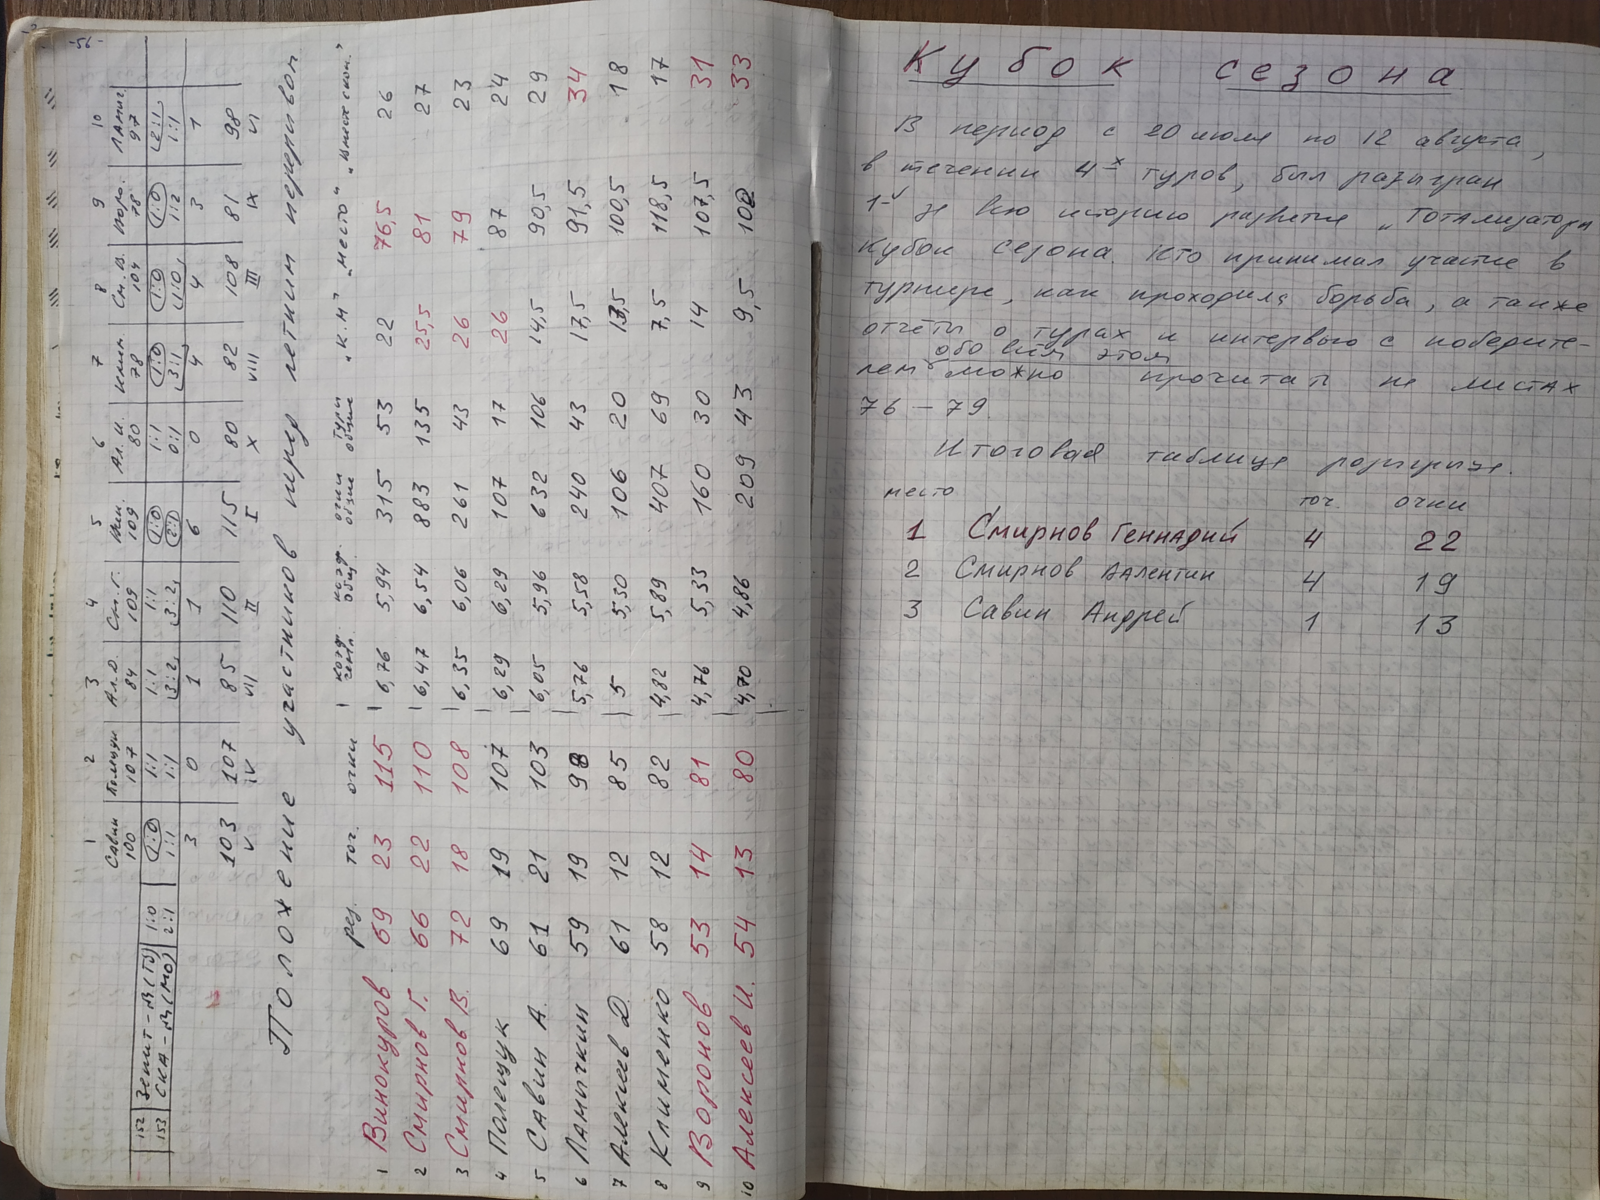 -56-
1 2 3 4 5 6 7 8 9 10
Савин Ал.Д. См.Г. Вин. Ал.И. Клим. См.В. Воро. Ламич.
100 107 84 109 109 80 78 104 78 97
152 Зенит-М(ТЭ) 1:0 1:0 1:1 1:1 1:1 1:0 1:1 1:0 1:0 1:0 2:1
153 СКА-М(МО) 2:1 1:1 1:1 3:2 3:2 2:1 0:1 3:1 1:0 1:2 1:1
3 0 1 1 6 0 4 4 3 1
103 107 85 110 115 80 82 108 81 98
V IV VII II I X VIII III IX VI
Положение участников перед летним перерывом
рез. точ. очки коэф. чемп. коэф. общ. очки общие туры общие "к.м" "место" "вниз скол."
1 Винокуров 69 23 115 6,76 5,94 315 53 22 76,5 26
2 Смирнов Г. 66 22 110 6,47 6,54 883 135 25,5 81 27
3 Смирнов В. 72 18 108 6,35 6,06 261 43 26 79 23
4 Полещук 69 19 107 6,29 6,29 107 17 26 87 24
5 Савин А. 61 21 103 6,05 5,96 632 106 14,5 90,5 29
6 Ламичкин 59 19 98 5,76 5,58 240 43 17,5 91,5 34
7 Алексеев Д. 61 12 85 5 5,30 106 20 13,5 100,5 18
8 Клименко 58 12 82 4,82 5,89 407 69 7,5 118,5 17
9 Воронов 53 14 81 4,76 5,33 160 30 14 107,5 31
10 Алексеев И. 54 13 80 4,70 4,86 209 43 9,5 102 33
Кубок сезона
В период с 20 июля по 12 августа,
в течении 4-х туров, был разыгран
1-й за всю историю развития „Тотализатора
Кубок сезона Кто принимал участие в
турнире, как проходила борьба, а также
отчёты о турах и интервью с победите-
обо всём этом
лем можно прочитать на листах
76 – 79
Итоговая таблица розыгрыша.
место точ. очки
1 Смирнов Геннадий 4 22
2 Смирнов Валентин 4 19
3 Савин Андрей 1 13